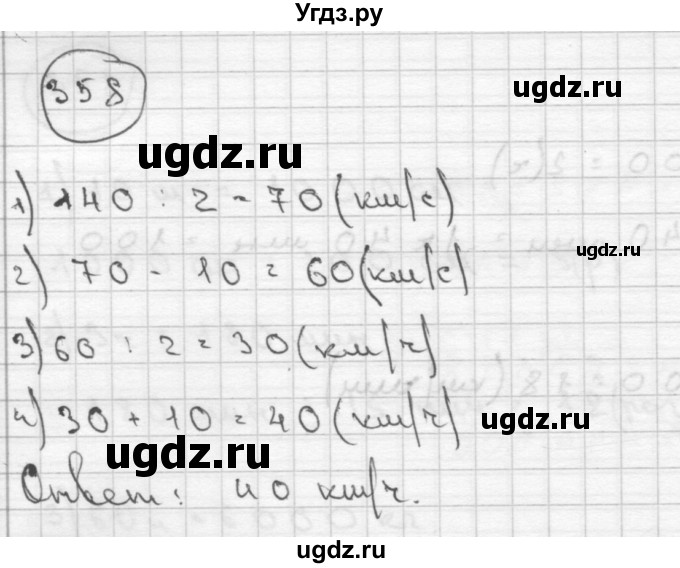 Угдз.ру
358
ugdz.ru
ugdz.ru
1) 140 : 2 = 70 (км/с)
ugdz.ru
2) 70 - 10 = 60 (км/с)
3) 60 : 2 = 30 (км/ч)
4) 30 + 10 = 40 (км/ч)
ugdz.ru
ugdz.ru
Ответ: 40 км/ч.
ugdz.ru